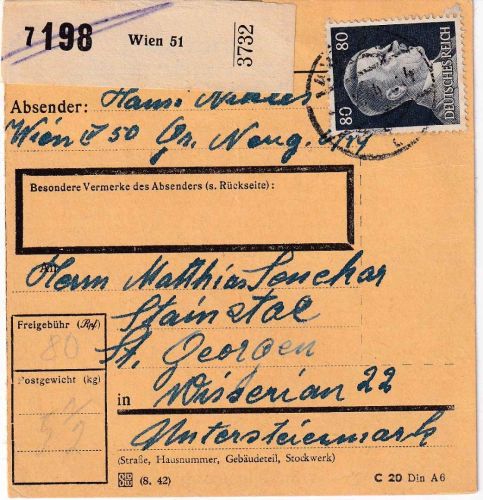 7 198 Wien 51 3732
80 80 DEUTSCHES REICH
Absender: Hans
Wien 50 Gr. Neug.
Besondere Vermerke des Absenders (s. Rückseite):
An
Herrn Matthias Senekar
Stainstal
St. Georgen
Freigebühr (Rpf)
80
Postgewicht (kg)
in Wisserian 22
Untersteiermark
(Straße, Hausnummer, Gebäudeteil, Stockwerk)
(8. 42) C 20 Din A6